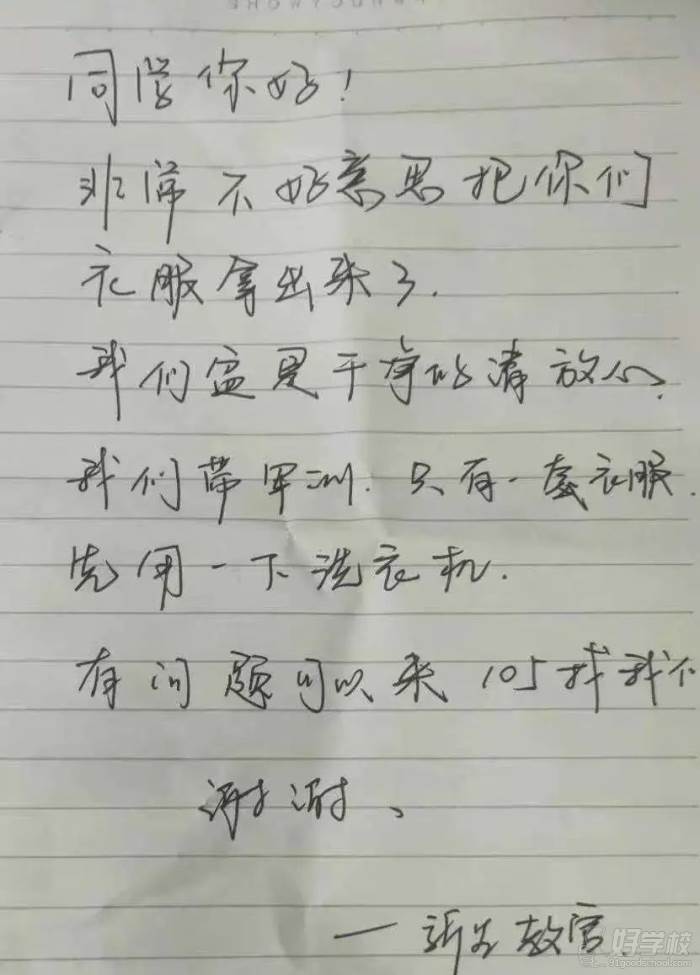 同学你好!
非常不好意思把你们
衣服拿出来了.
我们盆是干净的请放心.
我们带军训.只有一套衣服.
先用一下洗衣机.
有问题可以来105找我们
谢谢、
—新生教官
好学校
91goodschool.com